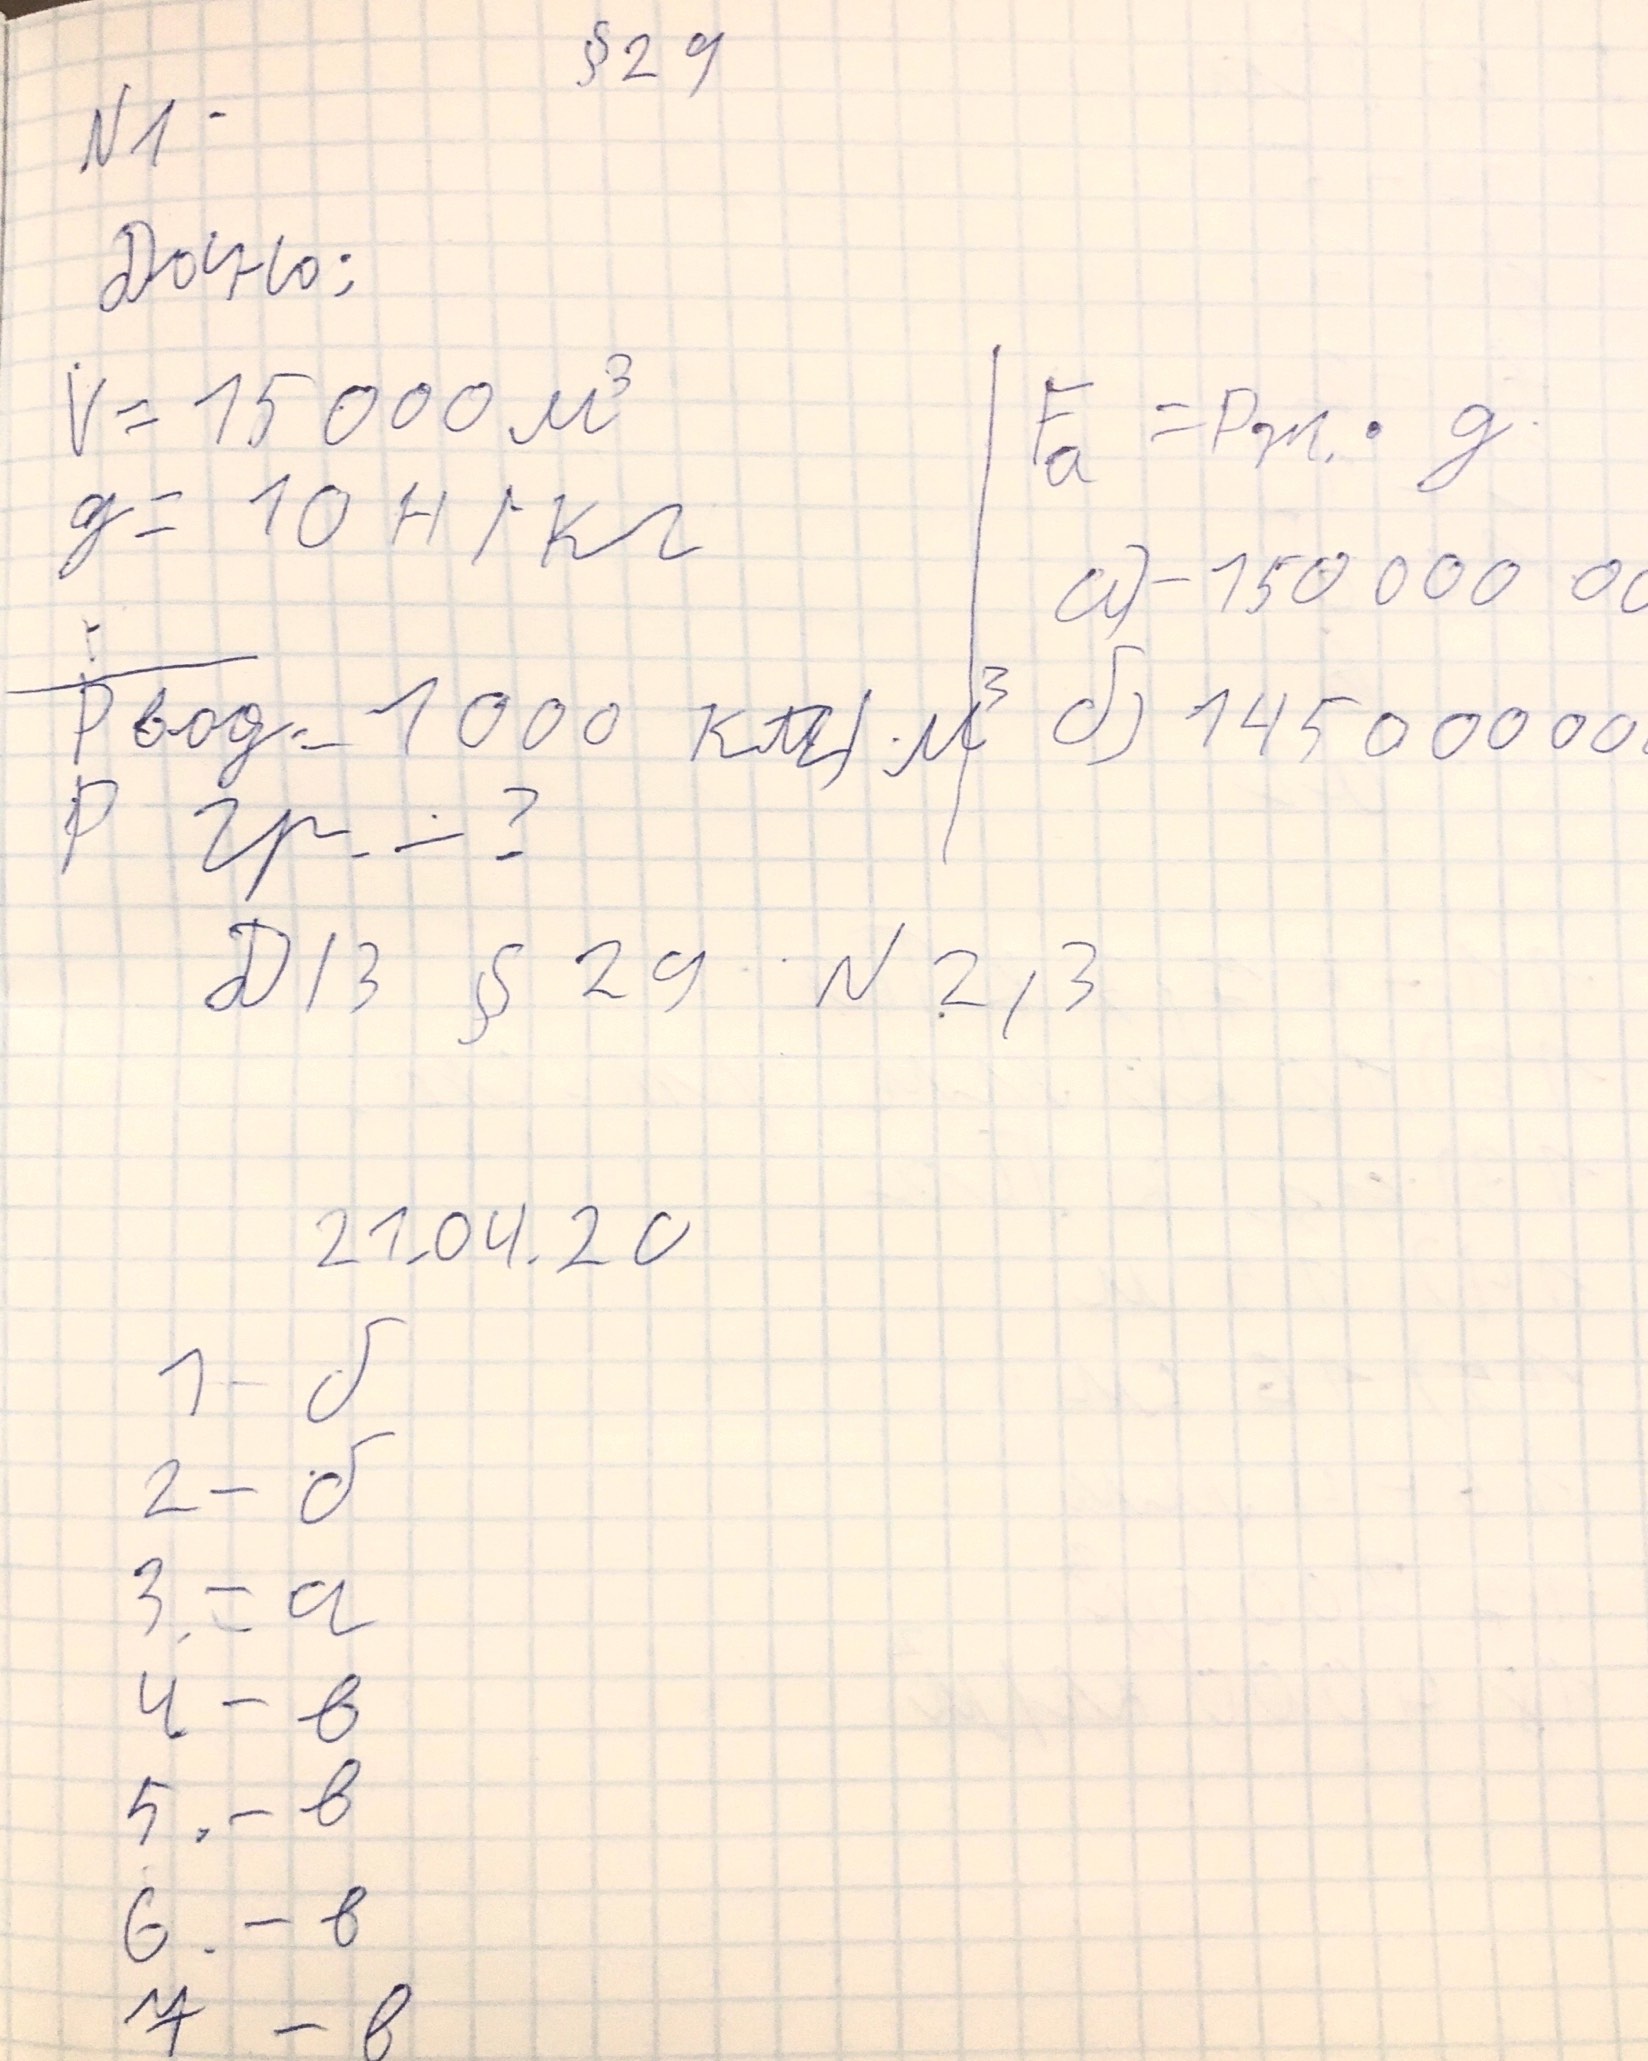 §29
N1
Дано:
V = 15 000 м³
g = 10 Н/кг
Pвод. - 1000 кг/м³
P гр. - ?
Fa = Pж. · g
а) - 150 000 00
б) 145000000
Д/З § 29 N 2,3
21.04.20
1 - б
2 - б
3. - а
4 - в
5. - в
6. - в
7 - в